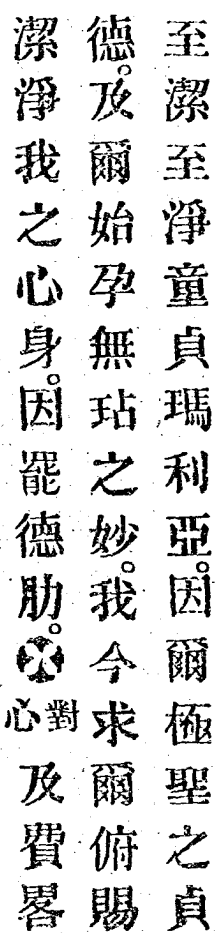 至潔至淨童貞瑪利亞。因爾極聖之貞
德。及爾始孕無玷之妙。我今求爾俯賜
潔淨我之心身。因罷德肋。對心及費畧